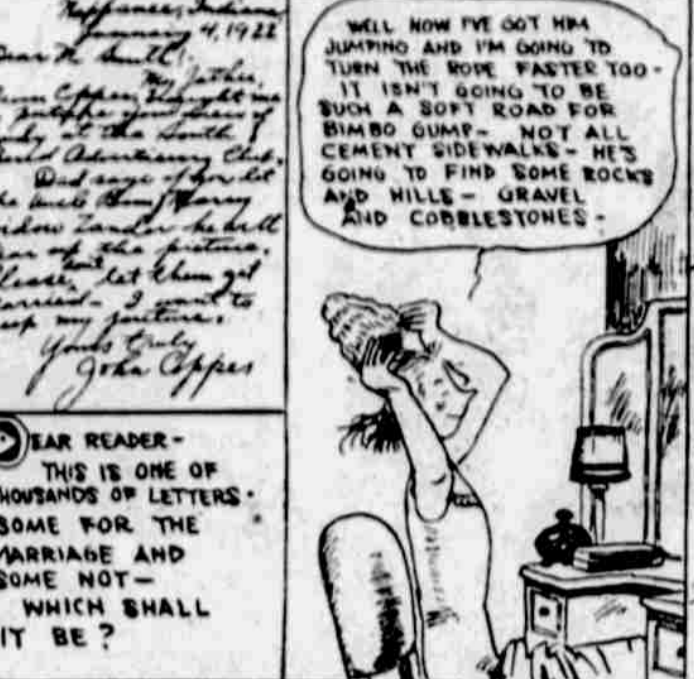 Nappanee, Indiana
January 4, 1922
Dear Mr Smith:
My father,
thought me
at the South
Advertising Club.
Dad says if you let
Uncle Bim marry
Widow Zander he will
the picture.
Please, don't let them get
married - I want to
my picture.
Yours truly
John Coppes
DEAR READER-
THIS IS ONE OF
THOUSANDS OF LETTERS.
SOME FOR THE
MARRIAGE AND
SOME NOT-
WHICH SHALL
IT BE?
WELL NOW I'VE GOT HIM
JUMPING AND I'M GOING TO
TURN THE ROPE FASTER TOO-
IT ISN'T GOING TO BE
SUCH A SOFT ROAD FOR
BIMBO GUMP- NOT ALL
CEMENT SIDEWALKS- HE'S
GOING TO FIND SOME ROCKS
AND HILLS- GRAVEL
AND COBBLESTONES-